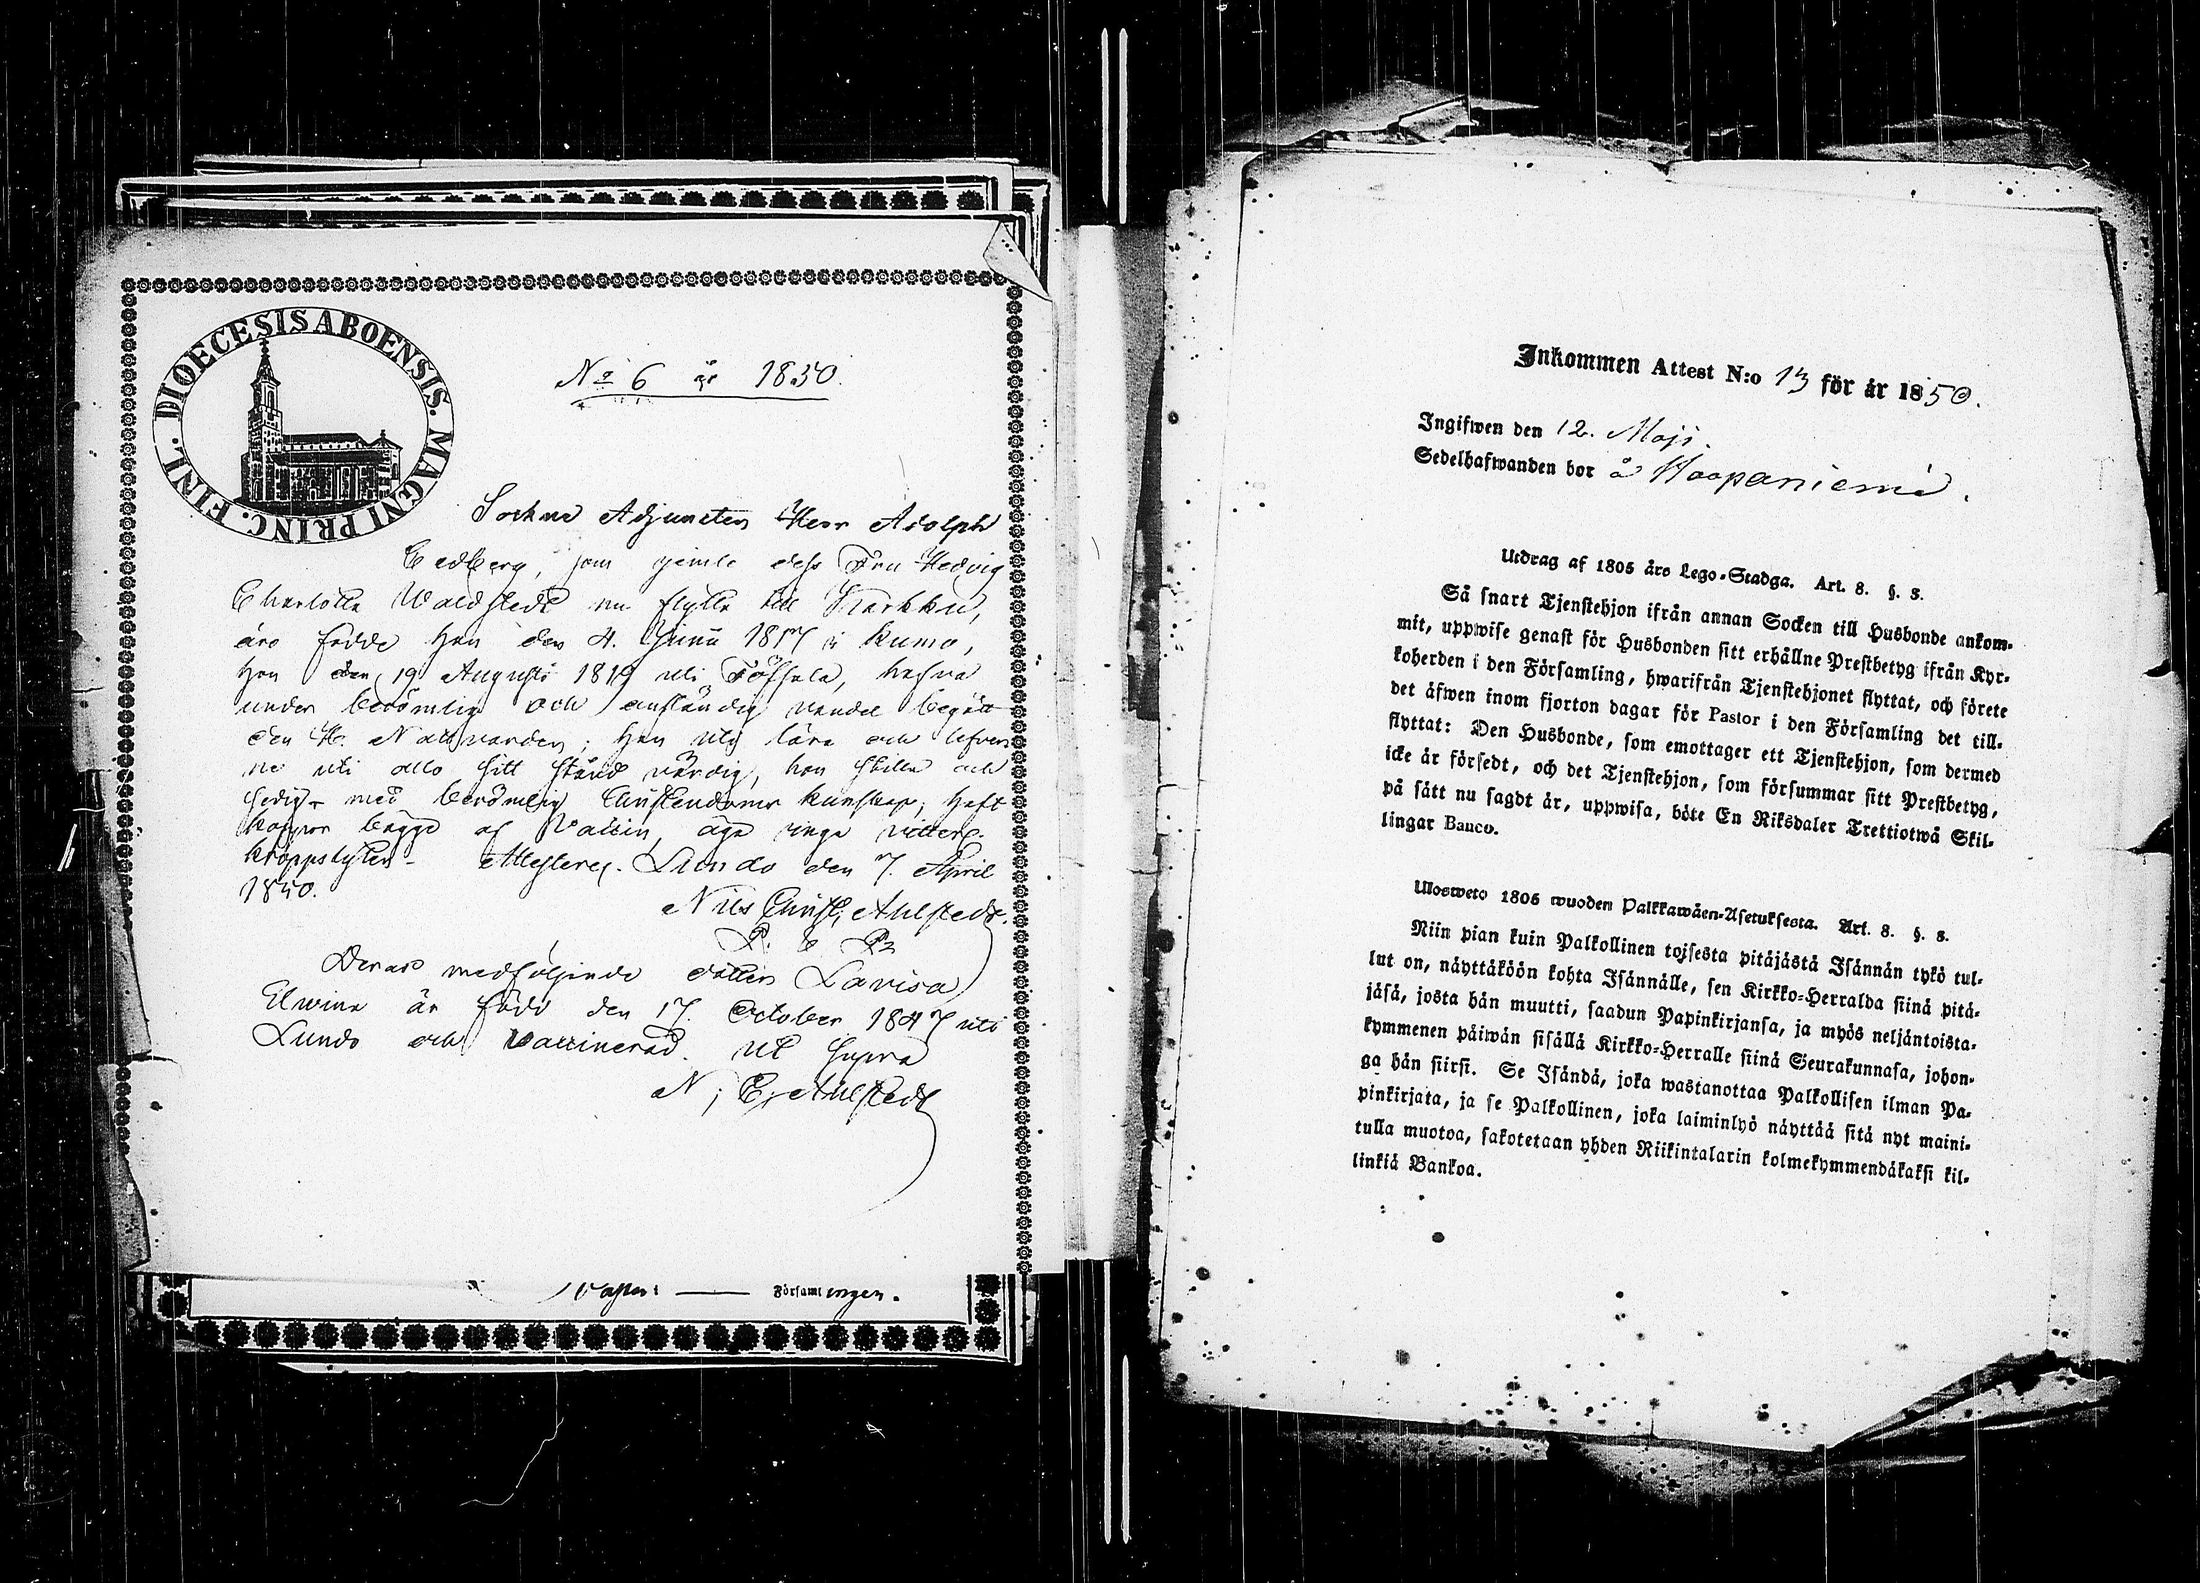 DIOECESIS ABOENSIS. MAGNI PRINC. FINL.
No 6 år 1850.
Sockne Adjuncten Herr Adolph
Hedvig
Charlotta Waldstedt nu flytta till Karkku,
äro födde Han den 4. Junii 1817 i Kumo,
Hon den 19 Augusti 1819 uti
under berömlig och anständig vandel begått
den H. Nattvarden; Han uti lära och lefver
ne uti allo sitt stånd värdig, hon stilla och
sedig med berömlig Christendoms kunskap; haft
koppor bägge af Vaccin, äga inga
kroppslyten. Attesterar. Lundo den 7. April
1850.
Nils Christ. Ahlstedt.
Deras medföljande dotter Lovisa
Elwina är född den 17. October 1847 uti
Lundo och Vaccinerad. Ut supra
N. C. Ahlstedt
Församlingen.
Inkommen Attest N:o 13 för år 1850.
Ingifwen den 12. Maji.
Sedelhafwanden bor å Haapaniemi.
Utdrag af 1805 års Lego-Stadga. Art. 8. §. 3.
Så snart Tjenstehjon ifrån annan Socken till Husbonde ankom-
mit, uppwise genast för Husbonden sitt erhållne Prestbetyg ifrån Kyr-
koherden i den Församling, hwarifrån Tjenstehjonet flyttat, och förete
det äfwen inom fjorton dagar för Pastor i den Församling det till-
flyttat: Den Husbonde, som emottager ett Tjenstehjon, som dermed
icke är försedt, och det Tjenstehjon, som försummar sitt Prestbetyg,
på sätt nu sagdt är, uppwisa, böte En Riksdaler Trettiotwå Skil-
lingar Banco.
Ulosweto 1805 wuoden Palkkawäen-Asetuksesta. Art. 8. §. 3.
Niin pian kuin Palkollinen toisesta pitäjästä Isännän tykö tul-
lut on, näyttäköön kohta Isännälle, sen Kirkko-Herralda siinä pitä-
jäsä, josta hän muutti, saadun Papinkirjansa, ja myös neljäntoista-
kymmenen päiwän sisällä Kirkko-Herralle siinä Seurakunnasa, johon-
ga hän siirsi. Se Isändä, joka wastanottaa Palkollisen ilman Pa-
pinkirjata, ja se Palkollinen, joka laiminlyö näyttää sitä nyt maini-
tulla muotoa, sakotetaan yhden Riikintalarin kolmekymmendäkaksi kil-
linkiä Bankoa.